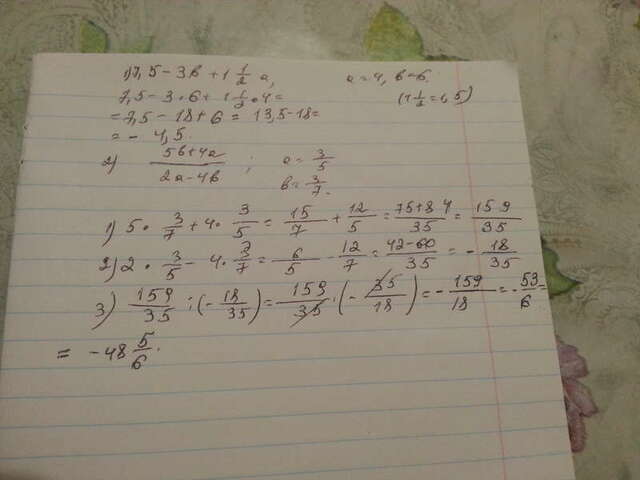 1) 7,5 - 3b + 1 1/2 a, a = 4, b = 6.
7,5 - 3 · 6 + 1 1/2 · 4 = (1 1/2 = 1,5)
= 7,5 - 18 + 6 = 13,5 - 18 =
= - 4,5.
2) (5b + 4a)/(2a - 4b) ; a = 3/5
b = 3/7.
1) 5 · 3/7 + 4 · 3/5 = 15/7 + 12/5 = (75 + 84)/35 = 159/35
2) 2 · 3/5 - 4 · 3/7 = 6/5 - 12/7 = (42 - 60)/35 = - 18/35
3) 159/35 : (- 18/35) = 159/35 · (- 35/18) = - 159/18 = - 53/6 =
= - 48 5/6.